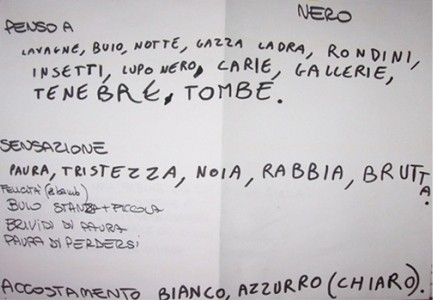 NERO
PENSO A
LAVAGNE, BUIO, NOTTE, GAZZA LADRA, RONDINI,
INSETTI, LUPO NERO, CARIE, GALLERIE,
TENEBRE, TOMBE.
SENSAZIONE
PAURA, TRISTEZZA, NOIA, RABBIA, BRUTTA.
FELICITÀ
BUIO STANZA + PICCOLA
BRIVIDI DI PAURA
PAURA DI PERDERSI
ACCOSTAMENTO BIANCO, AZZURRO (CHIARO).